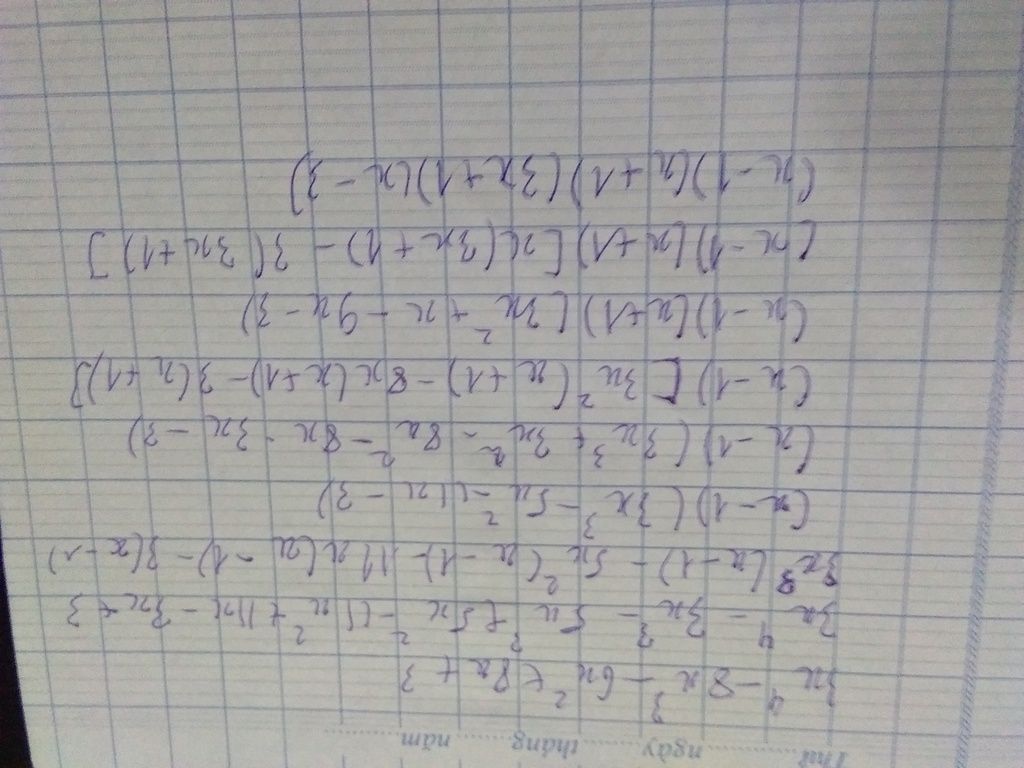 Thứ ngày tháng năm
3x⁴ - 8x³ - 6x² + 8x + 3
3x⁴ - 3x³ - 5x³ + 5x² - 11x² + 11x - 3x + 3
3x³(x-1) - 5x²(x-1) - 11x(x-1) - 3(x-1)
(x-1)(3x³ - 5x² - 11x - 3)
(x-1)(3x³ + 3x² - 8x² - 8x - 3x - 3)
(x-1)[3x²(x+1) - 8x(x+1) - 3(x+1)]
(x-1)(x+1)(3x² + x - 9x - 3)
(x-1)(x+1)[x(3x+1) - 3(3x+1)]
(x-1)(x+1)(3x+1)(x-3)